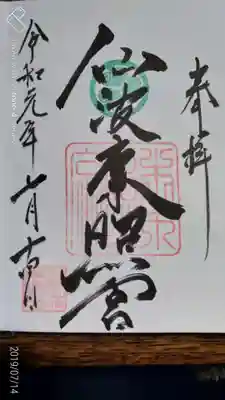 奉拝
仙波東照宮
令和元年七月十四日
2019/07/14